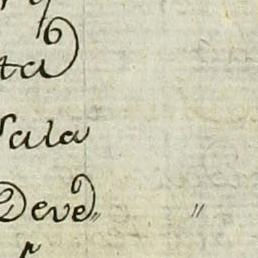 ta
Sala
Deve,, "